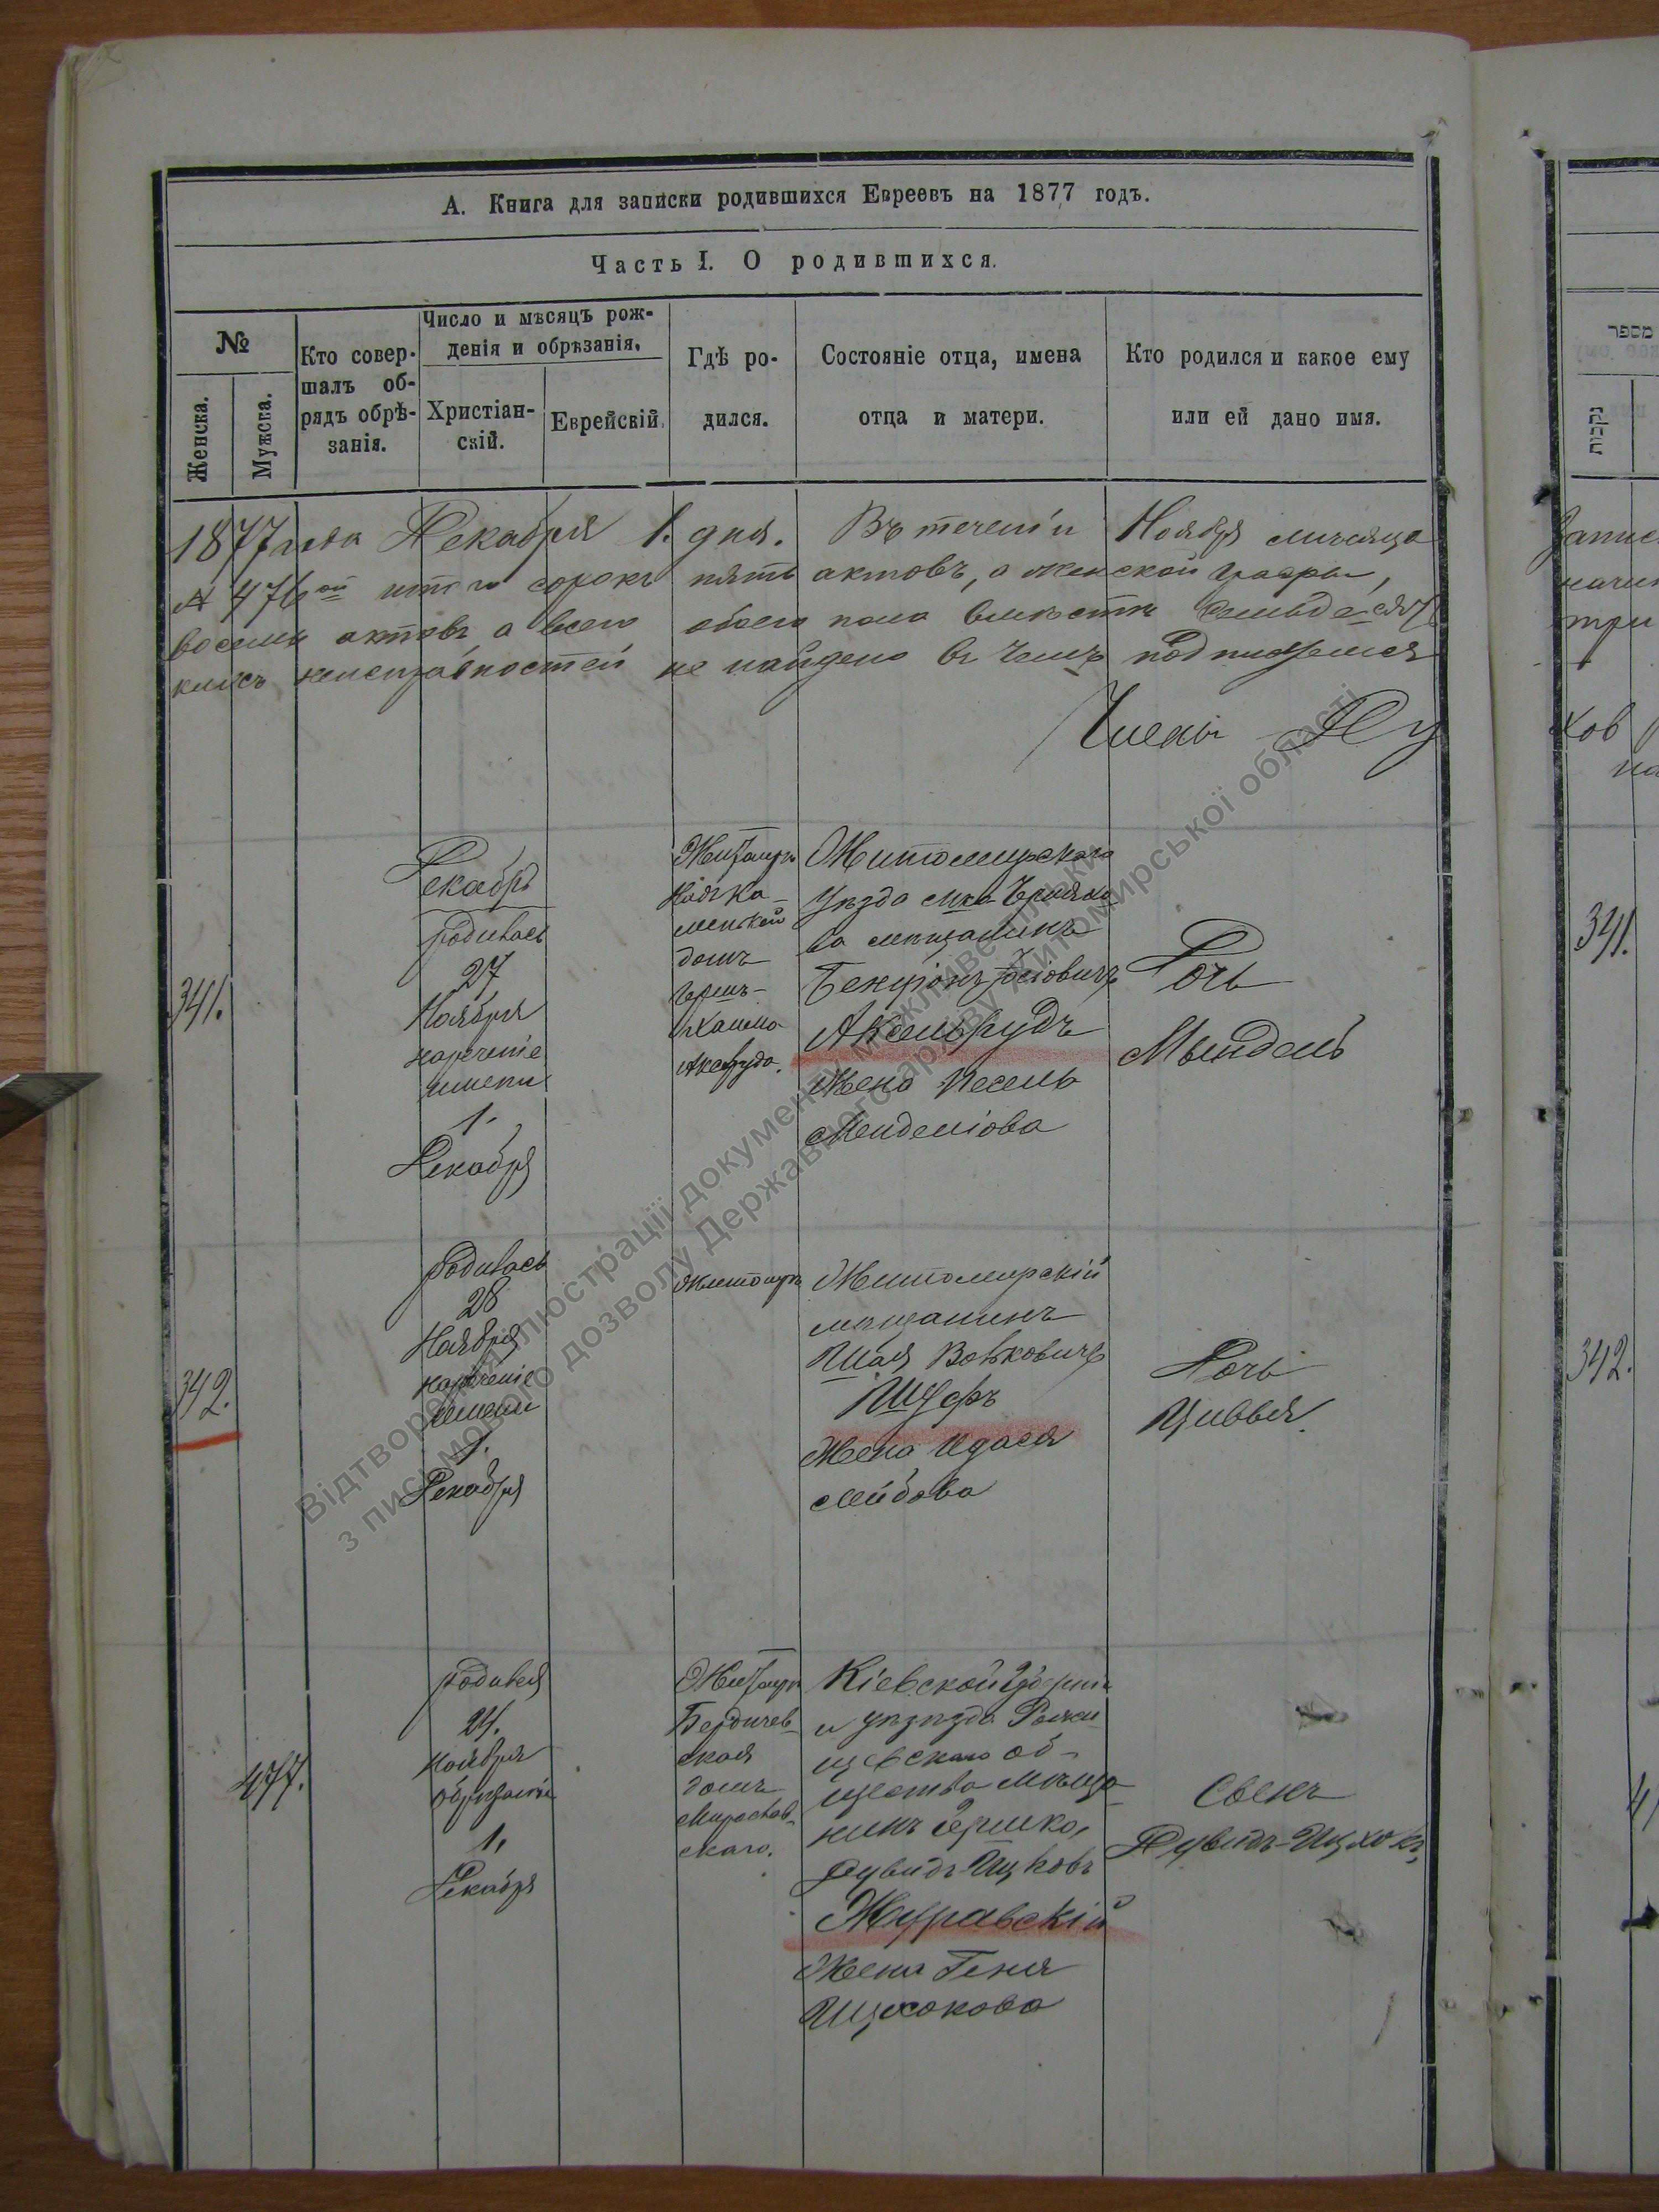 А. Книга для записки родившихся Евреевъ на 1877 годъ.
Часть I. О родившихся.
№
Женска.
Мужска.
Кто совер-
шалъ об-
рядъ обрѣ-
занія.
Число и мѣсяцъ рож-
денія и обрѣзанія.
Христіан-
скій.
Еврейскій.
Гдѣ ро-
дился.
Состояніе отца, имена
отца и матери.
Кто родился и какое ему
или ей дано имя.
מספר
נקבות
1877 года Декабря 1. дня. Въ теченіи Ноября мѣсяца
476ой итого сорокъ пять актовъ, а женской графы,
восемь актовъ, а всего обоего пола вмѣстѣ
неисправностей не найдено въ чемъ подпишемся
Члены
341.
Декабрь
родилась
27
Ноября
нареченіе
имени
1.
Декабря
Житомиръ
домъ
Житомирскаго
уѣзда
мѣщанинъ
Аксельрудъ
Жена Песель
Менделіова
Дочь
Мындель
341.
342.
родилась
28
Ноября
нареченіе
имени
1.
Декабря
Житомиръ
Житомирскій
мѣщанинъ
Шая Вольковичъ
Шуфъ
Жена Идася
Лейбова
Дочь
Цивья.
342.
477.
родился
24.
Ноября
обрѣзаніе
1.
Декабря
Житомиръ
Бердичев-
ская
домъ
скаго.
Кіевской Губерніи
и уѣзда
об-
щества мѣща-
нинъ Гершко,
Дувидъ Ицковъ
Журавскій
Жена Геня
Ицхокова
Сынъ
Дувидъ-Ицхокъ,
Відтворення ілюстрації документу можливе тільки
з письмового дозволу Державного архіву Житомирської області